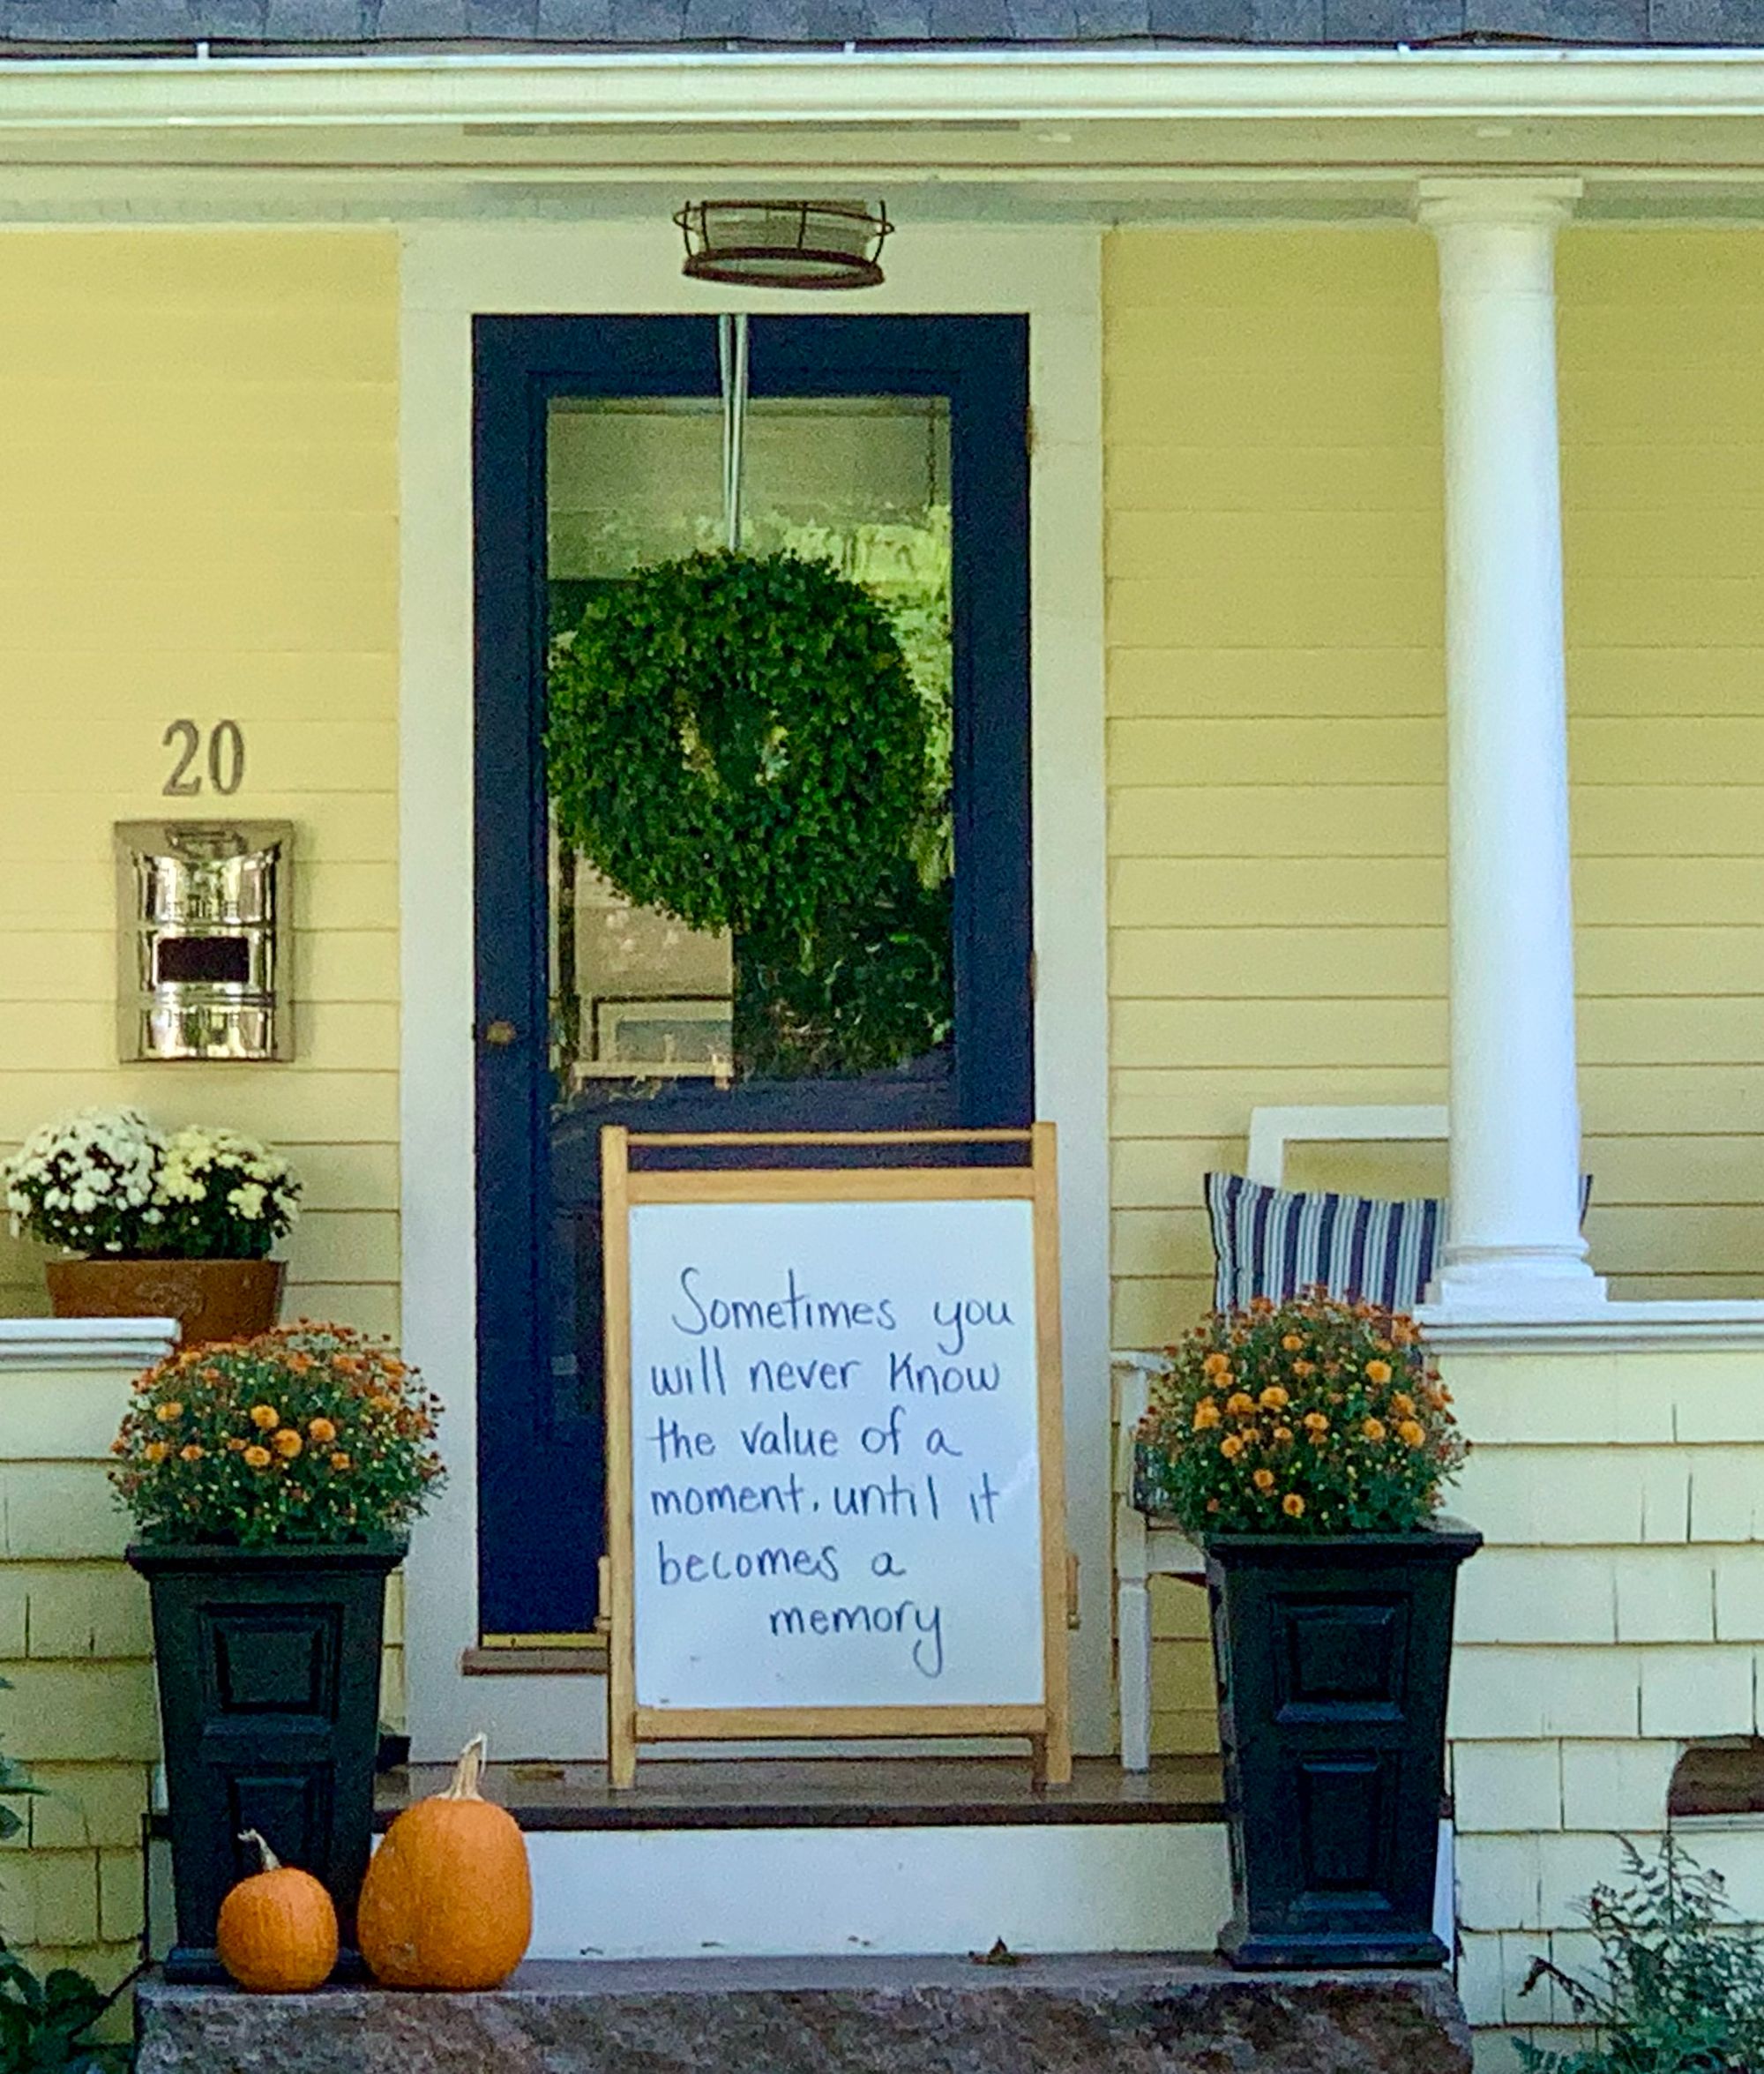 20
Sometimes you
will never know
the value of a
moment. until it
becomes a
memory